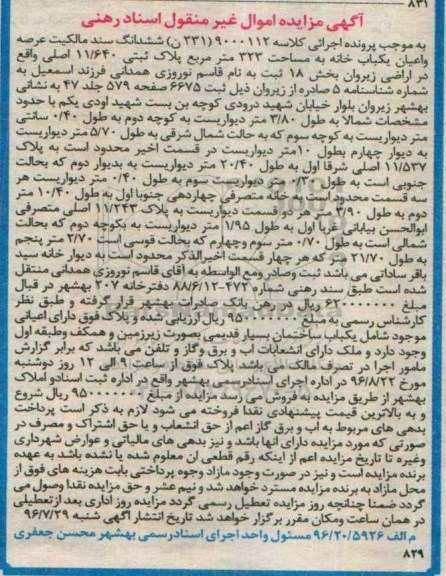 ۸۳۱
آگهی مزایده اموال غیر منقول اسناد رهنی
به موجب پرونده اجرائی کلاسه ۹۰۰۰۱۱۲ (۳۳۱ ن) ششدانگ سند مالکیت عرصه
واعیان یکباب خانه به مساحت ۳۲۳ متر مربع پلاک ثبتی ۱۱/۶۴۰ اصلی واقع
در اراضی زیروان بخش ۱۸ ثبت به نام قاسم نوروزی همدانی فرزند اسمعیل به
شماره شناسنامه ۵ صادره از زیروان ذیل ثبت ۶۶۷۵ صفحه ۵۷۹ جلد ۴۷ به نشانی
بهشهر زیروان بلوار خیابان شهید درودی کوچه بن بست شهید اودی یکم با حدود
مشخصات شمالا به طول ۳/۸۰ متر دیواریست به کوچه دوم به طول ۰/۴۰ سانتی
متر دیواریست به کوچه سوم که به حالت شمال شرقی به طول ۵/۷۰ متر دیواریست
به دیوار چهارم بطول ۱۰متر دیواریست در قسمت اخیر محدود است به پلاک
۱۱/۵۳۷ اصلی شرقا اول به طول ۲۰/۴۰ متر دیواریست به بدیوار دوم که بحالت
جنوبی است به طول ۰/۳۰ متر دیواریست سوم به طول ۰/۴۰ متر دیواریست هر
سه قسمت محدود است به خانه متصرفی چهاردهی جنوبا اول به طول ۱۰/۴۰ متر
دوم به طول ۳/۹۰ متر هر دو قسمت دیواریست به پلاک ۱۱/۲۴۳ اصلی متصرفی
ابوالحسن بیابانی غربا اول به طول ۱/۹۵ متر دیواریست به بکوچه دوم که بحالت
شمالی است به طول ۰/۷۰ متر سوم وچهارم که بحالت قوسی است ۲/۷۰ متر پنجم
به طول ۲۱/۷۰ متر که هر چهار قسمت اخیرالذکر محدود است به دیوار خانه سید
باقر ساداتی می باشد ثبت وصادر ومع الواسطه به آقای قاسم نوروزی همدانی منتقل
شده است طبق سند رهنی شماره ۴۷۲-۸۸/۶/۱۲ دفترخانه ۲۰۷ بهشهر در قبال
مبلغ ۶۲۰۰۰۰۰۰۰ ریال در رهن بانک صادرات بهشهر قرار گرفته و طبق نظر
کارشناس رسمی به مبلغ ۹۵۰۰۰۰۰۰۰ ریال ارزیابی شده و پلاک فوق دارای اعیانی
موجود شامل یکباب ساختمان بسیار قدیمی بصورت زیرزمین و همکف وطبقه اول
وجود دارد و ملک دارای انشعابات اب و برق وگاز و تلفن می باشد که برابر گزارش
مامور اجرا در تصرف مالک می باشد پلاک فوق از ساعت ۹ الی ۱۲ روز دوشنبه
مورخ ۹۶/۸/۲۲ در اداره اجرای اسنادرسمی بهشهر واقع در اداره ثبت اسنادو املاک
بهشهر از طریق مزایده به فروش می رسد مزایده از مبلغ ۹۵۰۰۰۰۰۰۰ ریال شروع
و به بالاترین قیمت پیشنهادی نقدا فروخته می شود لازم به ذکر است پرداخت
بدهی های مربوط به آب و برق گاز اعم از حق انشعاب و یا حق اشتراک و مصرف در
صورتی که مورد مزایده دارای آنها باشد و نیز بدهی های مالیاتی و عوارض شهرداری
وغیره تا تاریخ مزایده اعم از اینکه رقم قطعی ان معلوم شده یا نشده باشد به عهده
برنده مزایده است و نیز در صورت وجود مازاد وجوه پرداختی بابت هزینه های فوق از
محل مازاد به برنده مزایده مسترد خواهد شد و نیم عشر و حق مزایده نقدا وصول می
گردد ضمنا چنانچه روز مزایده تعطیل رسمی گردد مزایده روز اداری بعد ازتعطیلی
در همان ساعت ومکان مقرر برگزار خواهد شد تاریخ انتشار آگهی شنبه ۹۶/۷/۲۹
م الف ۹۶/۲۰/۵۹۲۶ مسئول واحد اجرای اسنادرسمی بهشهر محسن جعفری
۸۲۹